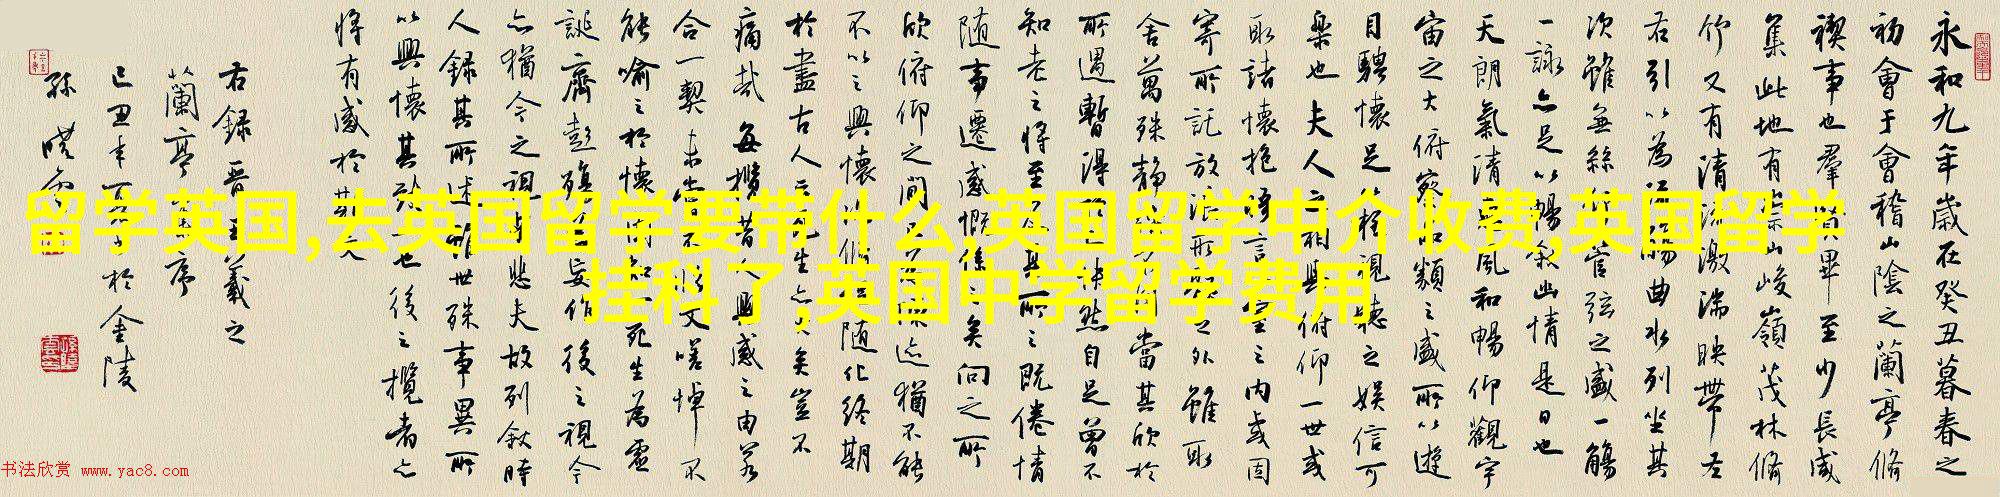 永和九年歲在癸丑暮春之
初會于會稽山陰之蘭亭脩
禊事也羣賢畢至少長咸
集此地有崇山峻嶺茂林脩
竹又有清流激湍映帶左
右引以為流觴曲水列坐其
次雖無絲竹管弦之盛一觴
一詠亦足以暢敘幽情是日也
天朗氣清惠風和暢仰觀宇
宙之大俯察品類之盛所以遊
目騁懷足以極視聽之娛信可
樂也夫人之相與俯仰一世或
取諸懷抱悟言一室之內或因
寄所託放浪形骸之外雖取
舍萬殊靜躁不同當其欣於
所遇暫得於己快然自足曾不
知老之將至及其所之既倦情
隨事遷感慨係之矣向之所
欣俯仰之間已為陳迹猶不能
不以之興懷況脩短隨化終期
於盡古人云死生亦大矣豈不
痛哉每攬昔人興感之由若
合一契未嘗不臨文嗟悼不
能喻之於懷固知一死生為虛
誕齊彭殤為妄作後之視今
亦猶今之視昔悲夫故列敘時
人錄其所述雖世殊事異所
以興懷其致一也後之攬者亦
將有感於斯文
右錄晉王羲之
蘭亭集序
己丑年夏於金陵
孫曉雲
留学英国,去英国留学要带什么,英国留学中介收费,英国留学
挂科了,英国中学留学费用
书法欣赏 www.yac8.com